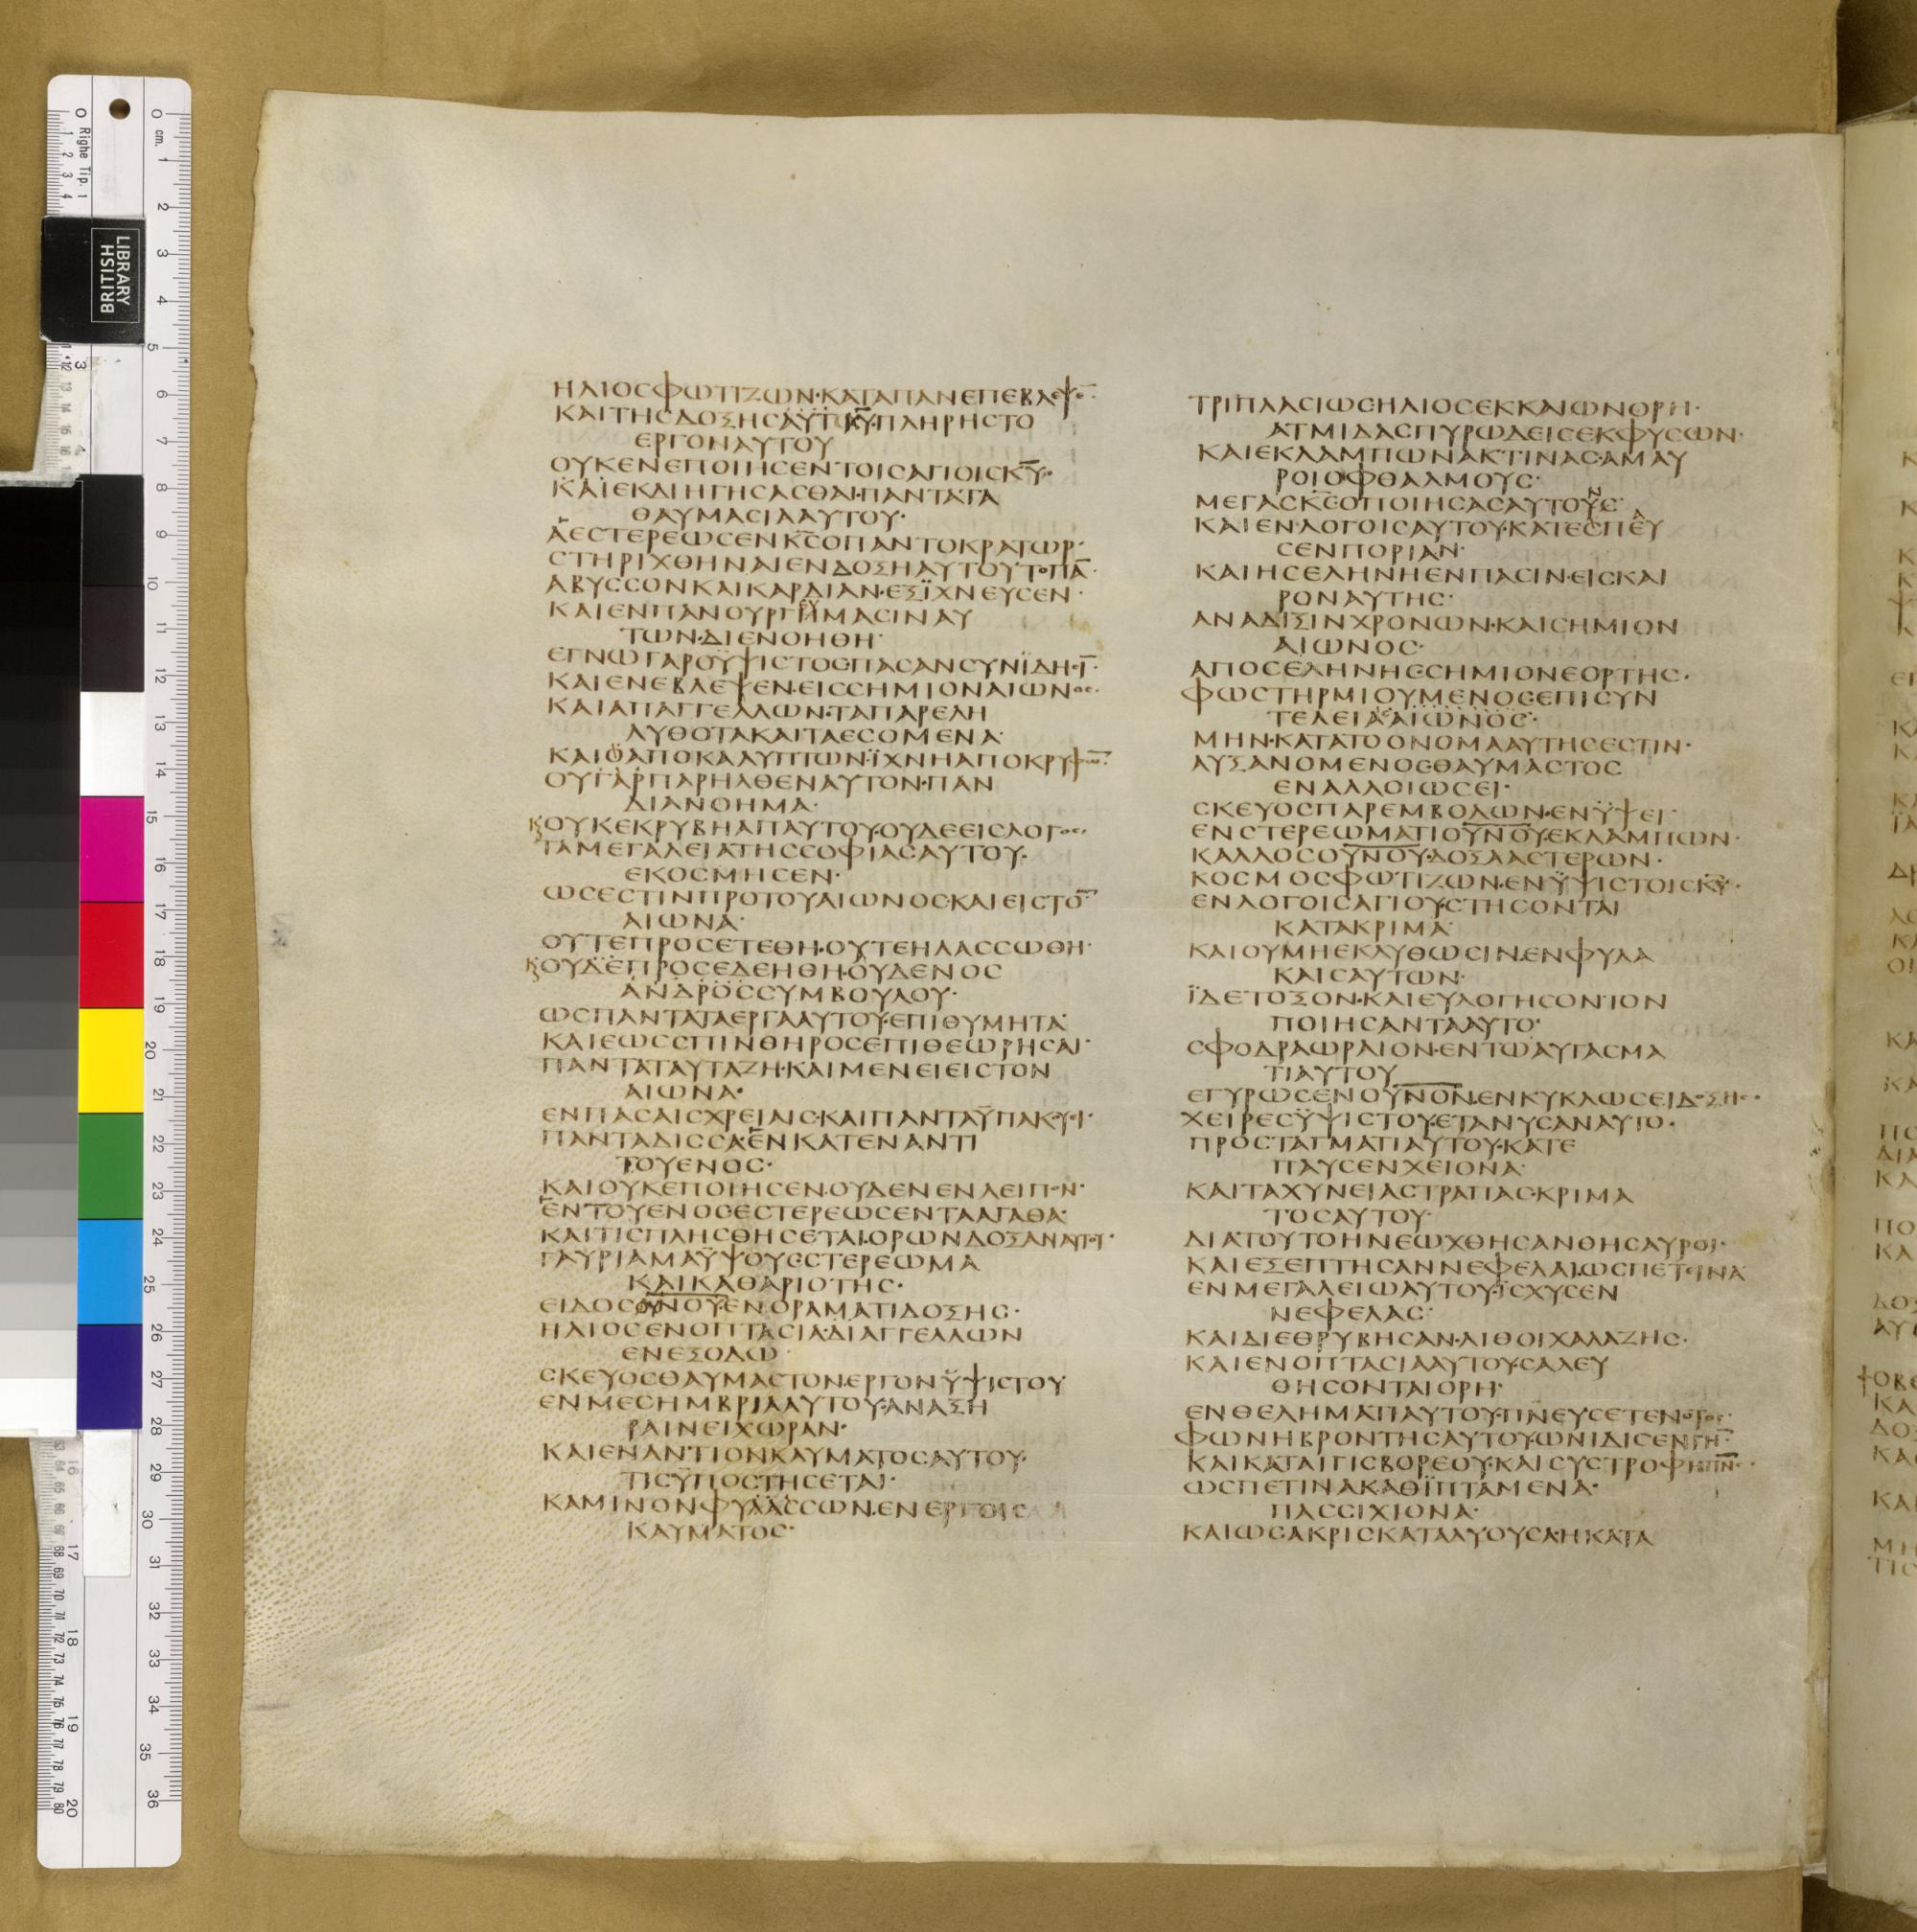 ΗΛΙΟСΦωΤΙΖωΝ·ΚΑΤΑΠΑΝΕΠΕΒΛΕΨΕ̅·
ΚΑΙΤΗСΔΟΞΗСΑΥΤΟΥΠΛΗΡΗСΤΟ
ΕΡΓΟΝΑΥΤΟΥ
ΟΥΚΕΝΕΠΟΙΗСΕΝΤΟΙСΑΓΙΟΙСΚ̅Υ̅·
ΚΑΙΕΚΔΙΗΓΗСΑСΘΑΙ·ΠΑΝΤΑΤΑ
ΘΑΥΜΑСΙΑΑΥΤΟΥ·
ΑΕСΤΕΡΕωСΕΝΚ̅С̅ΟΠΑΝΤΟΚΡΑΤωΡ·
СΤΗΡΙΧΘΗΝΑΙΕΝΔΟΞΗΑΥΤΟΥΤΟΠΑ̅·
ΑΒΥССΟΝΚΑΙΚΑΡΔΙΑΝ·ΕΞΪΧΝΕΥСΕΝ·
ΚΑΙΕΝΠΑΝΟΥΡΓΗΜΑСΙΝΑΥ
ΤωΝ·ΔΙΕΝΟΗΘΗ·
ΕΓΝωΓΑΡΟΫΨΙСΤΟС·ΠΑСΑΝСΥΝΪΔΗ·Γ̅·
ΚΑΙΕΝΕΒΛΕΨΕΝ·ΕΙССΗΜΙΟΝΑΙωΝΟС·
ΚΑΙΑΠΑΓΓΕΛΛωΝ·ΤΑΠΑΡΕΛΗ
ΛΥΘΟΤΑΚΑΙΤΑΕСΟΜΕΝΑ·
ΚΑΙΟΑΠΟΚΑΛΥΠΤωΝ·ΪΧΝΗΑΠΟΚΡΥΦω̅·
ΟΥΓΑΡΠΑΡΗΛΘΕΝΑΥΤΟΝ·ΠΑΝ
ΔΙΑΝΟΗΜΑ·
ΟΥΚΕΚΡΥΒΗΑΠΑΥΤΟΥ·ΟΥΔΕΕΙСΛΟΓΟС·
ΤΑΜΕΓΑΛΕΙΑΤΗССΟΦΙΑСΑΥΤΟΥ·
ΕΚΟСΜΗСΕΝ·
ωСΕСΤΙΝΠΡΟΤΟΥΑΙωΝΟСΚΑΙΕΙСΤΟ̅
ΑΙωΝΑ·
ΟΥΤΕΠΡΟСΕΤΕΘΗ·ΟΥΤΕΗΛΑССωΘΗ·
ΟΥΔΕΠΡΟСΕΔΕΗΘΗ·ΟΥΔΕΝΟС
ΑΝΔΡΟССΥΜΒΟΥΛΟΥ·
ωСΠΑΝΤΑΤΑΕΡΓΑΑΥΤΟΥ·ΕΠΙΘΥΜΗΤΑ·
ΚΑΙΕωССΠΙΝΘΗΡΟСΕΠΙΘΕωΡΗСΑΙ·
ΠΑΝΤΑΤΑΥΤΑΖΗ·ΚΑΙΜΕΝΕΙΕΙСΤΟΝ
ΑΙωΝΑ·
ΕΝΠΑСΑΙСΧΡΕΙΑΙС·ΚΑΙΠΑΝΤΑΫΠΑΚΟΥΙ·
ΠΑΝΤΑΔΙССΑ·ΕΝΚΑΤΕΝΑΝΤΙ
ΤΟΥΕΝΟС·
ΚΑΙΟΥΚΕΠΟΙΗСΕΝ·ΟΥΔΕΝΕΝΛΕΙΠΟΝ·
ΕΝΤΟΥΕΝΟС·ΕСΤΕΡΕωСΕΝΤΑΑΓΑΘΑ·
ΚΑΙΤΙСΠΛΗСΘΗСΕΤΑΙ·ΟΡωΝΔΟΞΑΝΑΥΤΟΥ·
ΓΑΥΡΙΑΜΑΫΨΟΥСՏΤΕΡΕωΜΑ
ΚΑΙΚΑΘΑΡΙΟΤΗС·
ΕΙΔΟСΟΥ̅Ν̅Ο̅Υ̅ΕΝΟΡΑΜΑΤΙΔΟΞΗС·
ΗΛΙΟСΕΝΟΠΤΑСΙΑ·ΔΙΑΓΓΕΛΛωΝ
ΕΝΕΞΟΔω·
СΚΕΥΟСΘΑΥΜΑСΤΟΝ·ΕΡΓΟΝΫΨΙСΤΟΥ
ΕΝΜΕСΗΜΒΡΙΑΑΥΤΟΥ·ΑΝΑΞΗ
ΡΑΙΝΕΙΧωΡΑΝ·
ΚΑΙΕΝΑΝΤΙΟΝΚΑΥΜΑΤΟСΑΥΤΟΥ·
ΤΙСΫΠΟСΤΗСΕΤΑΙ·
ΚΑΜΙΝΟΝΦΥΛΑССωΝ·ΕΝΕΡΓΟΙС
ΚΑΥΜΑΤΟС·
ΤΡΙΠΛΑСΙωСΗΛΙΟСΕΚΚΑΙωΝΟΡΗ·
ΑΤΜΙΔΑСΠΥΡωΔΕΙСΕΚΦΥСωΝ·
ΚΑΙΕΚΛΑΜΠωΝΑΚΤΙΝΑС·ΑΜΑΥ
ΡΟΙΟΦΘΑΛΜΟΥС·
ΜΕΓΑСΚ̅С̅ΟΠΟΙΗСΑСΑΥΤΟΥС·
ΚΑΙΕΝΛΟΓΟΙСΑΥΤΟΥ·ΚΑΤΕСΠΕΥ
СΕΝΠΟΡΙΑΝ·
ΚΑΙΗСΕΛΗΝΗΕΝΠΑСΙΝ·ΕΙСΚΑΙ
ΡΟΝΑΥΤΗС·
ΑΝΑΔΙΞΙΝΧΡΟΝωΝ·ΚΑΙСΗΜΙΟΝ
ΑΙωΝΟС·
ΑΠΟСΕΛΗΝΗС·СΗΜΙΟΝΕΟΡΤΗС·
ΦωСΤΗΡΜΙΟΥΜΕΝΟС·ΕΠΙСΥΝ
ΤΕΛΕΙΑΑΙωΝΟС·
ΜΗΝ·ΚΑΤΑΤΟΟΝΟΜΑΑΥΤΗСΕСΤΙΝ·
ΑΥΞΑΝΟΜΕΝΟС·ΘΑΥΜΑСΤΟС
ΕΝΑΛΛΟΙωСΕΙ·
СΚΕΥΟСΠΑΡΕΜΒΟΛωΝ·ΕΝΫΨΕΙ·
ΕΝСΤΕΡΕωΜΑΤΙΟΥ̅Ν̅Ο̅Υ̅·ΕΚΛΑΜΠωΝ·
ΚΑΛΛΟСΟΥ̅Ν̅Ο̅Υ̅·ΔΟΞΑΑСΤΕΡωΝ·
ΚΟСΜΟСΦωΤΙΖωΝ·ΕΝΫΨΙСΤΟΙСΚ̅Υ̅·
ΕΝΛΟΓΟΙСΑΓΙΟΥ·СΤΗСΟΝΤΑΙ
ΚΑΤΑΚΡΙΜΑ·
ΚΑΙΟΥΜΗΕΚΛΥΘωСΙΝ·ΕΝΦΥΛΑ
ΚΑΙСΑΥΤωΝ·
ΪΔΕΤΟΞΟΝ·ΚΑΙΕΥΛΟΓΗСΟΝΤΟΝ
ΠΟΙΗСΑΝΤΑΑΥΤΟ·
СΦΟΔΡΑωΡΑΙΟΝ·ΕΝΤωΑΥΓΑСΜΑ
ΤΙΑΥΤΟΥ
ΕΓΥΡωСΕΝΟΥ̅Ν̅Ο̅Ν̅·ΕΝΚΥΚΛωСΕΙΔΟΞΗС·
ΧΕΙΡΕСΫΨΙСΤΟΥ·ΕΤΑΝΥСΑΝΑΥΤΟ·
ΠΡΟСΤΑΓΜΑΤΙΑΥΤΟΥ·ΚΑΤΕ
ΠΑΥСΕΝΧΕΙΟΝΑ·
ΚΑΙΤΑΧΥΝΕΙΑСΤΡΑΠΑС·ΚΡΙΜΑ
ΤΟСΑΥΤΟΥ·
ΔΙΑΤΟΥΤΟΗΝΕωΧΘΗСΑΝΘΗСΑΥΡΟΙ·
ΚΑΙΕΞΕΠΤΗСΑΝΝΕΦΕΛΑΙ·ωСΠΕΤΕΙΝΑ·
ΕΝΜΕΓΑΛΕΙωΑΥΤΟΥ·ΪСΧΥСΕΝ
ΝΕΦΕΛΑС·
ΚΑΙΔΙΕΘΡΥΒΗСΑΝ·ΛΙΘΟΙΧΑΛΑΖΗС·
ΚΑΙΕΝΟΠΤΑСΙΑΑΥΤΟΥ·СΑΛΕΥ
ΘΗСΟΝΤΑΙΟΡΗ·
ΕΝΘΕΛΗΜΑΤΙΑΥΤΟΥ·ΠΝΕΥСΕΤΕΝΟΤΟС·
ΦωΝΗΒΡΟΝΤΗСΑΥΤΟΥ·ωΝΙΔΙСΕΝΓΗ̅·
ΚΑΙΚΑΤΑΙΓΙСΒΟΡΕΟΥ·ΚΑΙСΥСΤΡΟΦΗΠ̅Ν̅·
ωСΠΕΤΙΝΑΚΑΘΪΠΤΑΜΕΝΑ·
ΠΑССΙΧΙΟΝΑ·
ΚΑΙωСΑΚΡΙСΚΑΤΑΛΥΟΥСΑ·ΗΚΑΤΑ
BRITISH
LIBRARY
Righe Tip. 1
cm.